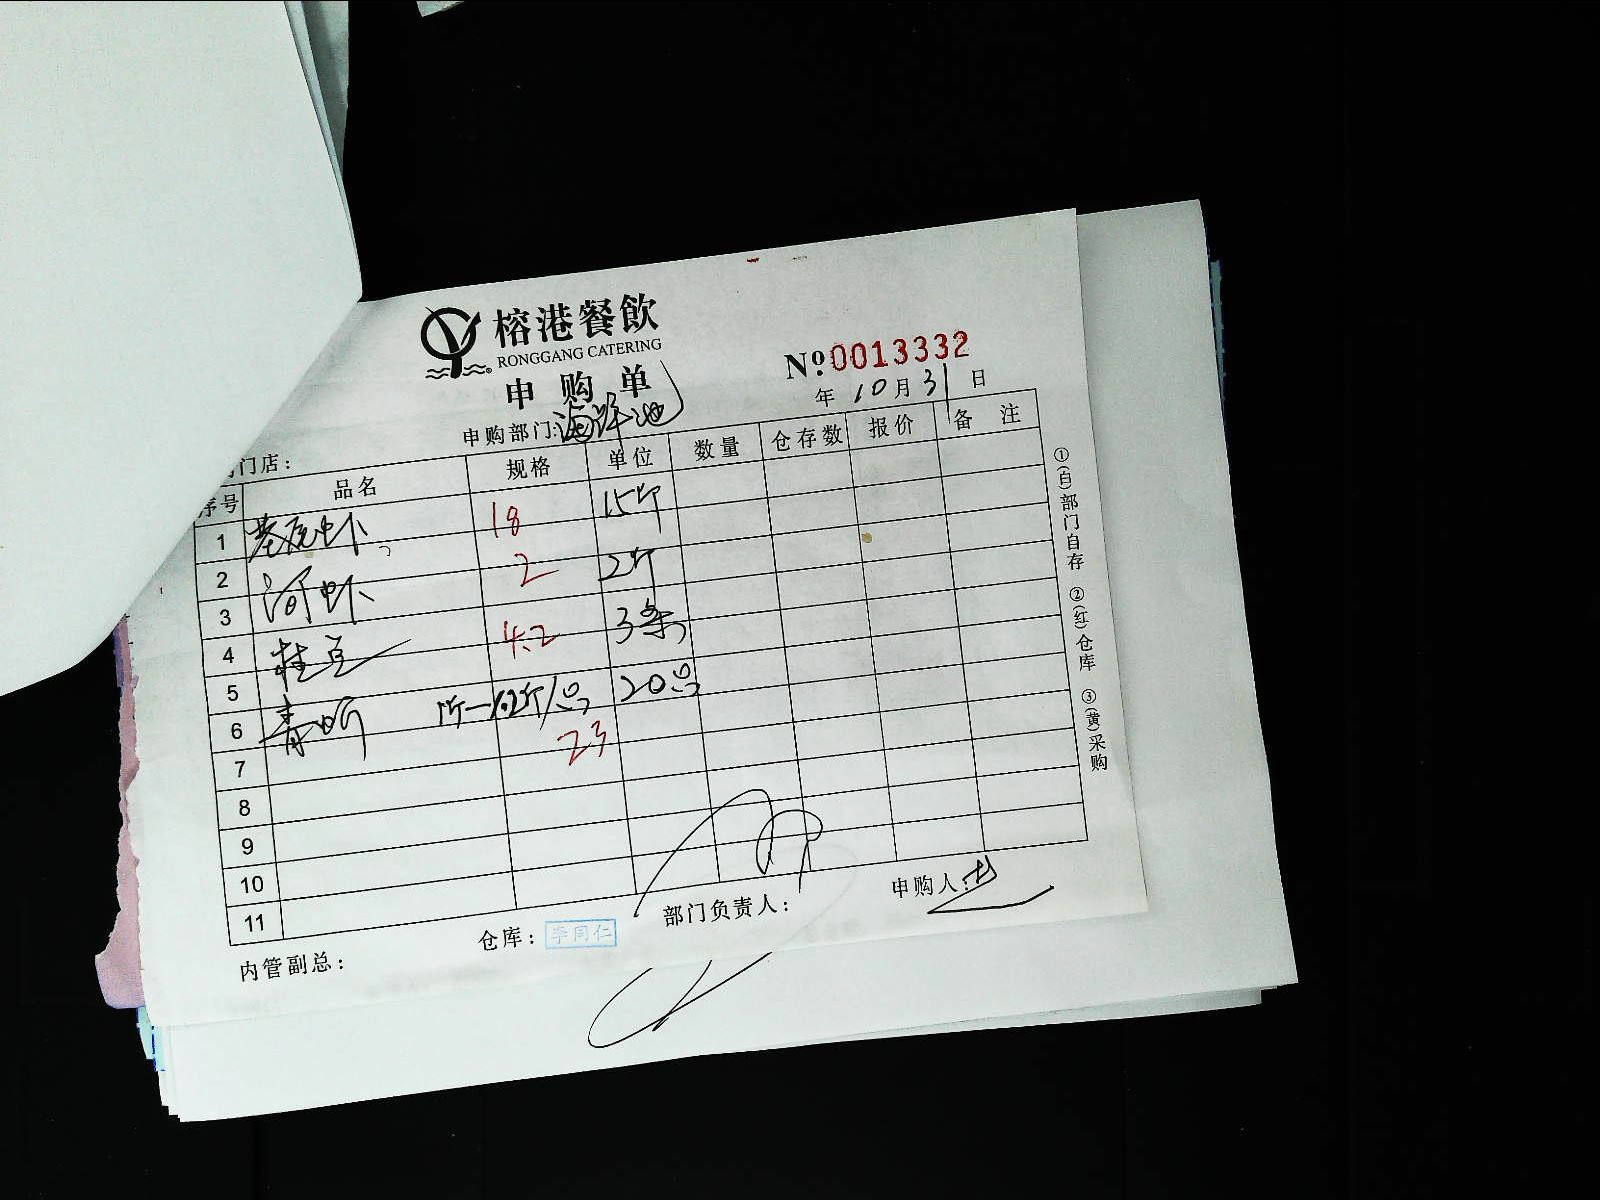 榕港餐飲
RONGGANG CATERING
申购单
№0013332
年 10 月 31 日
申购部门:海鲜池
门店：
序号 品名 规格 单位 数量 仓存数 报价 备注
1 基尾虾 18 15斤
2 2 2斤
3 河虾
4 桂鱼 4.2 3条
5 20只
6 青 23
7
8
9
10
11
①(白)部门自存 ②(红)仓库 ③(黄)采购
内管副总： 仓库：李同仁 部门负责人： 申购人：